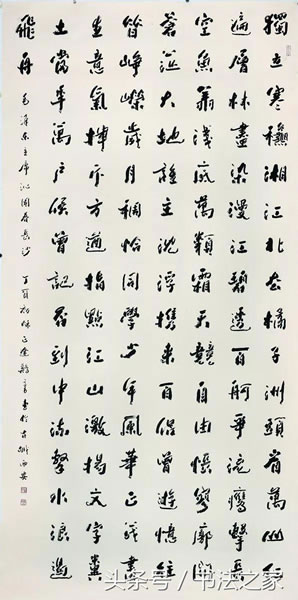 獨立寒穐湘江北去橘子洲頭看萬山紅
遍層林盡染漫江碧透百舸爭流鷹擊長
空魚翔淺底萬類霜天競自由悵寥廓問
蒼茫大地誰主沈浮攜來百侶曾遊憶往
昔崢嶸歲月稠恰同學少年風華正茂書
生意氣揮斥方遒指點江山激揚文字糞
土當年萬戶侯曾記否到中流擊水浪遏
飛舟
毛澤東主席沁園春長沙 丁酉初 書於古城西安
头条号 / 书法之家